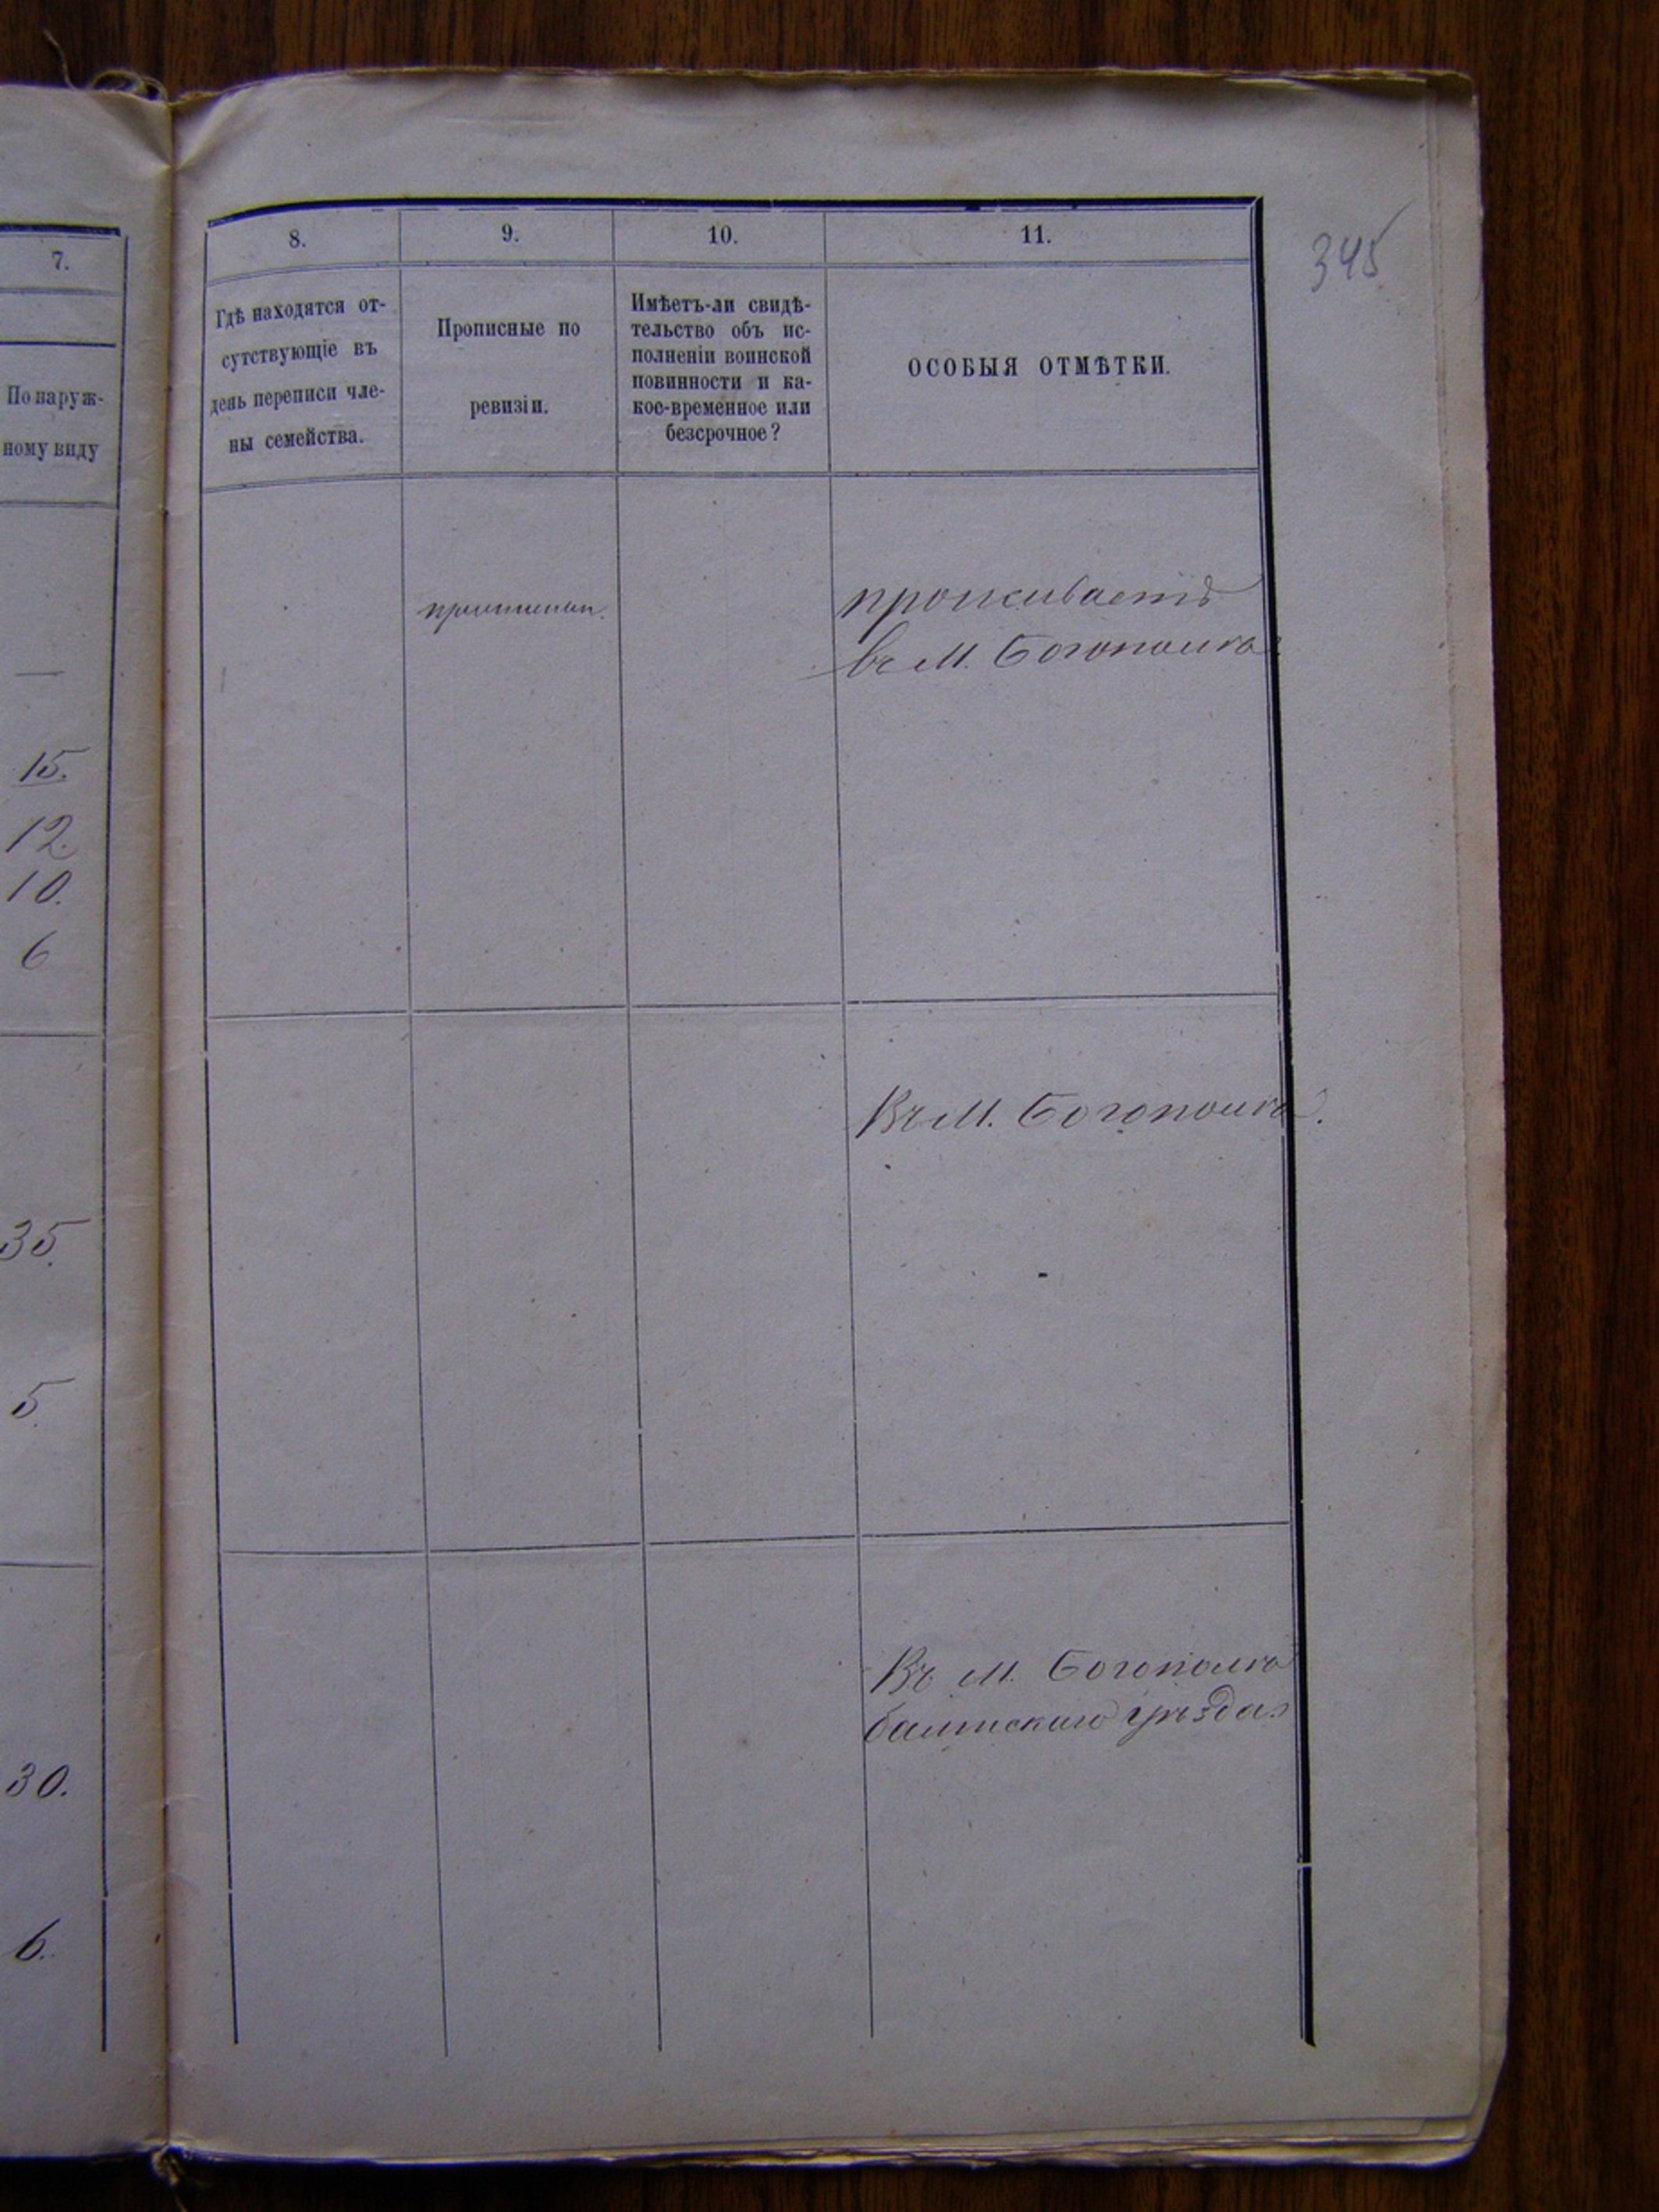 345
7.
По наруж-
ному виду
15.
12.
10.
6
35.
5
30.
6.
8.
9.
10.
11.
Гдѣ находятся от-
сутствующіе въ
день переписи чле-
ны семейства.
Прописные по
ревизіи.
Имѣетъ-ли свидѣ-
тельство объ ис-
полненіи воинской
повинности и ка-
кое-временное или
безсрочное?
ОСОБЫЯ ОТМѢТКИ.
проживаетъ
въ М. Богополѣ
Въ М. Богополѣ.
Въ М. Богополѣ
балтскаго уѣзда.